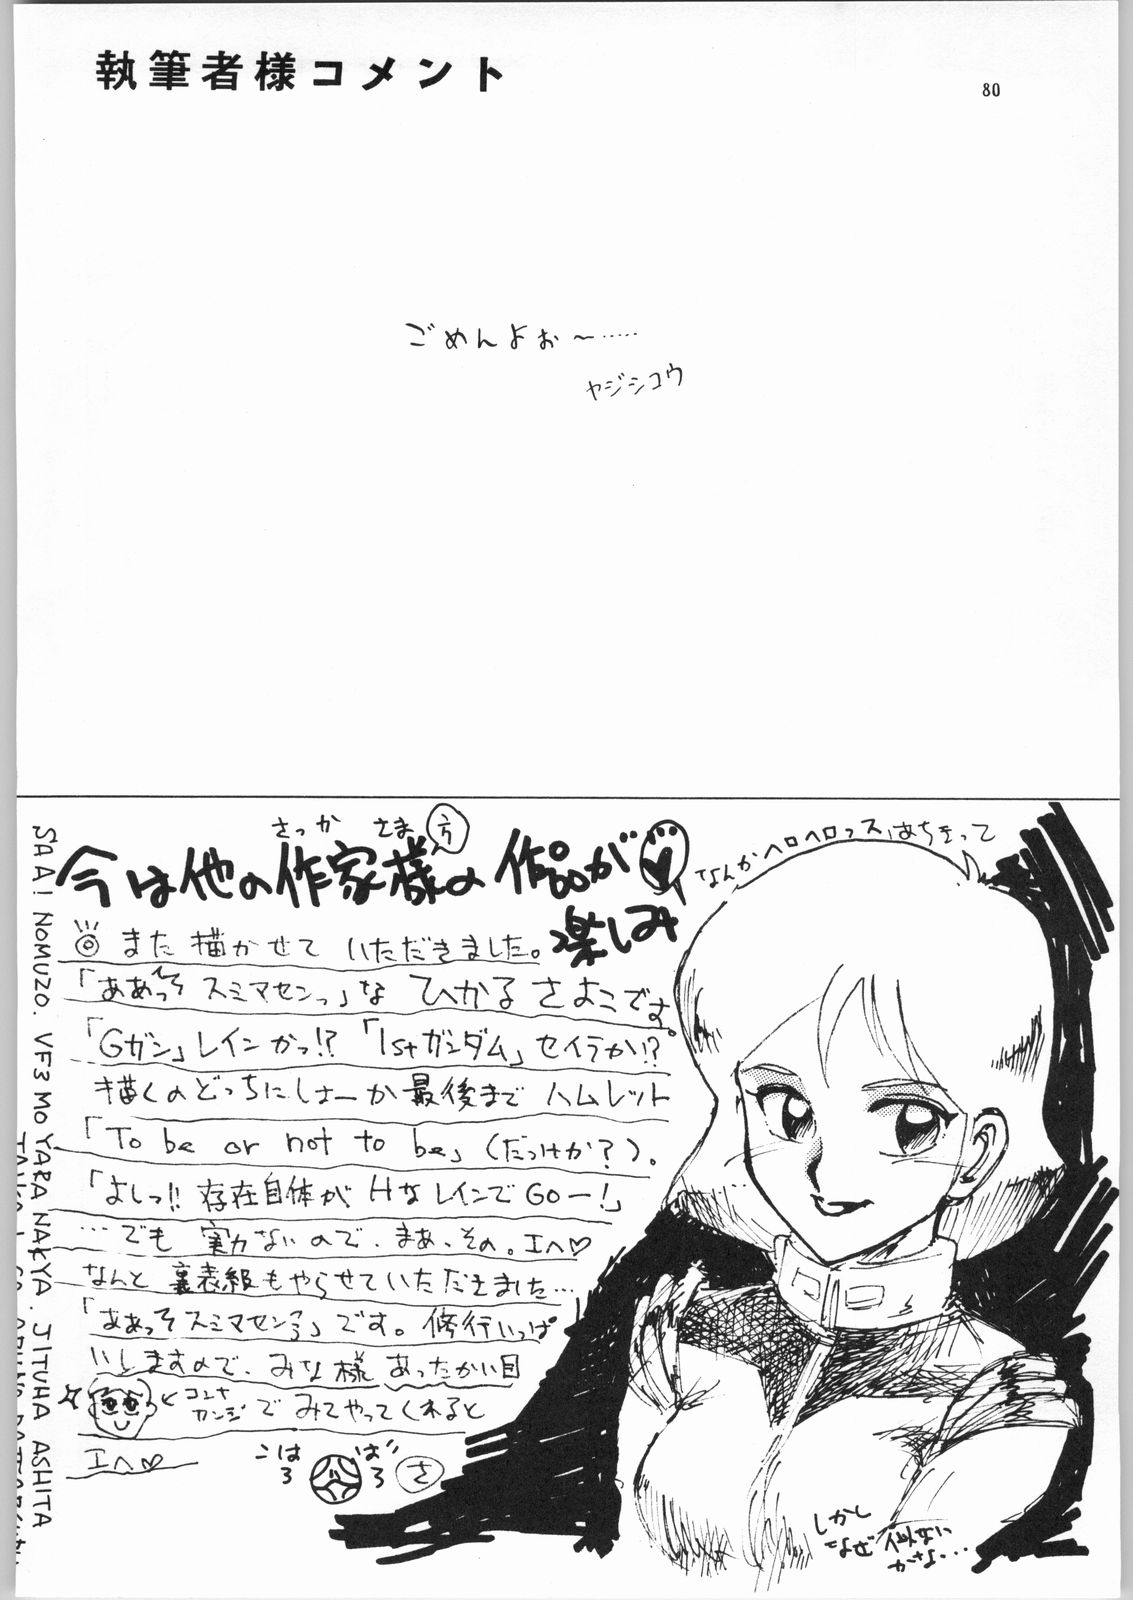 執筆者様コメント
80
ごめんよぉ〜……
ヤジシコウ
さっか さま 方
今は他の作家様の作品が
楽しみ
また描かせていただきました。
「ああっそスミマセンっ」な ひかるさよこです。
「Gガン」レインかっ!?「1stガンダム」セイラか!?
描くのどっちにしよーか最後までハムレット
「To be or not to be」(だっけか?)。
「よしっ!!存在自体がHなレインでGOー!」
…でも実力ないので、まあ、その。エヘ♡
なんと裏表紙もやらせていただきました…
「ああっそスミマセンっ」です。修行いっぱ
いしますので、みな様あったかい目
コンナ
カンジ
でみてやってくれると
エヘ♡
なんかヘロヘロっス
しかし
なぜ似ない
かな…
SAA! NOMUZO. VF3 MO YARA NAKYA. JITUHA ASHITA